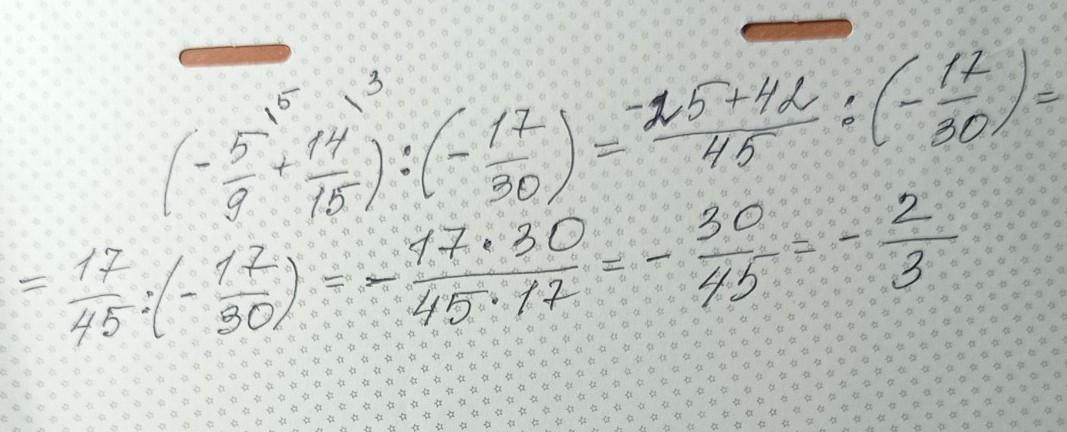 (-5/9\5 + 14/15\3) : (-17/30) = (-25+42)/45 : (-17/30) =
= 17/45 : (-17/30) = - (17·30)/(45·17) = - 30/45 = - 2/3